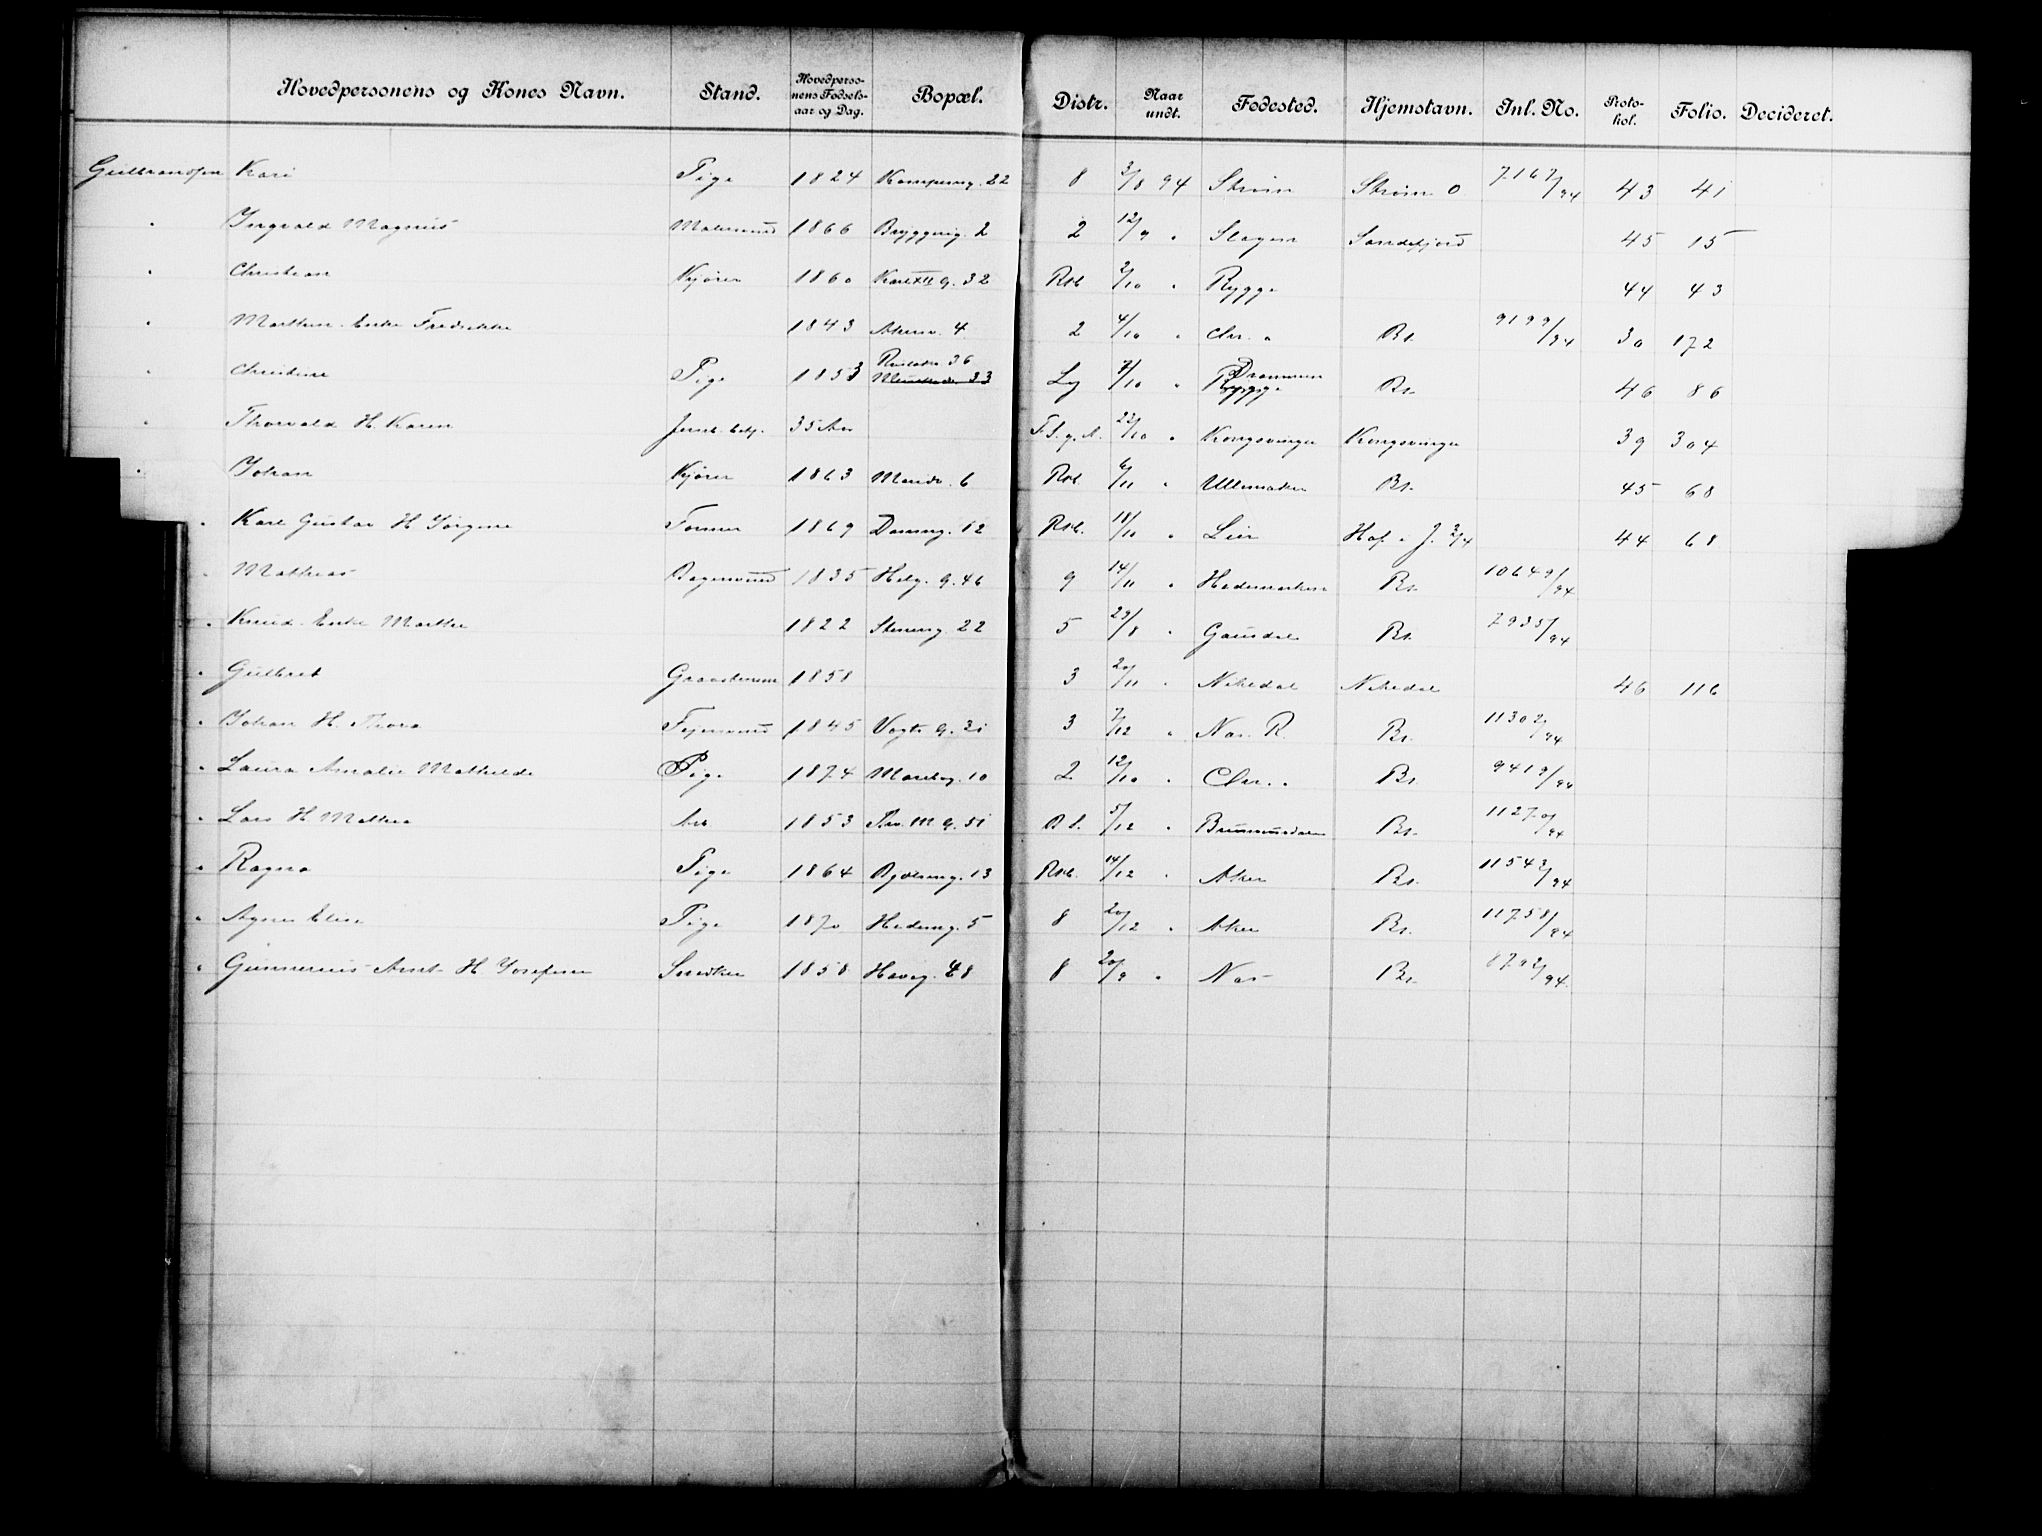 Hovedpersonens og Kones Navn. Stand. Hovedperso-nens Fødsels-aar og Dag. Bopæl. Distr. Naar undt. Fødested. Hjemstavn. Inl. No. Proto-kol. Folio. Decideret.
Gulbrandsen Kari Pige 1824 Kampeng. 22 8 2/8 94 Strøm Strøm O 7167/94 43 41
" Ingvald Magnus Malersvend 1866 Bryggerig. 2 2 12/9 " Slagen Sandefjord 45 15
" Christian Kjører 1860 Karl XII g. 32 Rst. 2/10 " Rygge 44 43
" Marthin Enke Fredrikke 1843 Akersv. 4 2 4/10 " Chr. a Bt. 9199/94 30 172
" Christine Pige 1853 36 33 7/10 " Drammen Rygge Bt. 46 86
" Thorvald H. Karen Jernb. betj. 35 Aar 22/10 " Kongsvinger Kongsvinger 39 304
" Johan Kjører 1863 Marids. 6 Rst. 6/11 " Ullensaker Bt. 45 68
" Karl Gustav H Jørgine Tømmer 1869 12 Rst. 18/10 " Lier Hof i J. 2/4 44 68
" Mathias Bagersvend 1835 Helg. g. 46 9 14/11 " Hedemarken Bt. 10649/94
" Knud Enke Marthe 1822 Stenersg. 22 5 23/8 " Gausdal Bt. 7935/94
" Gulbret Graastensm 1858 3 20/11 " Nitedal Nitedal 46 116
" Johan H. Thora Fejersvend 1845 Vogts g. 31 3 7/12 " Næs R. Bt. 11302/94
" Laura Amalie Mathilde Pige 1874 10 2 12/10 " Chr. a Bt. 9419/94
" Lars H Mathea Arb 1853 Thv. M g. 51 5/12 " Brumunddalen Bt. 11270/94
" Ragna Pige 1864 13 Rst. 14/12 " Aker Bt. 11543/94
" Agnes Elise Pige 1870 Hedemg. 5 8 20/12 " Aker Bt. 11758/94
" Gunnerius Arnt H Josefine Snedker 1858 Haveg. 48 8 20/9 " Næs Bt. 8792/94